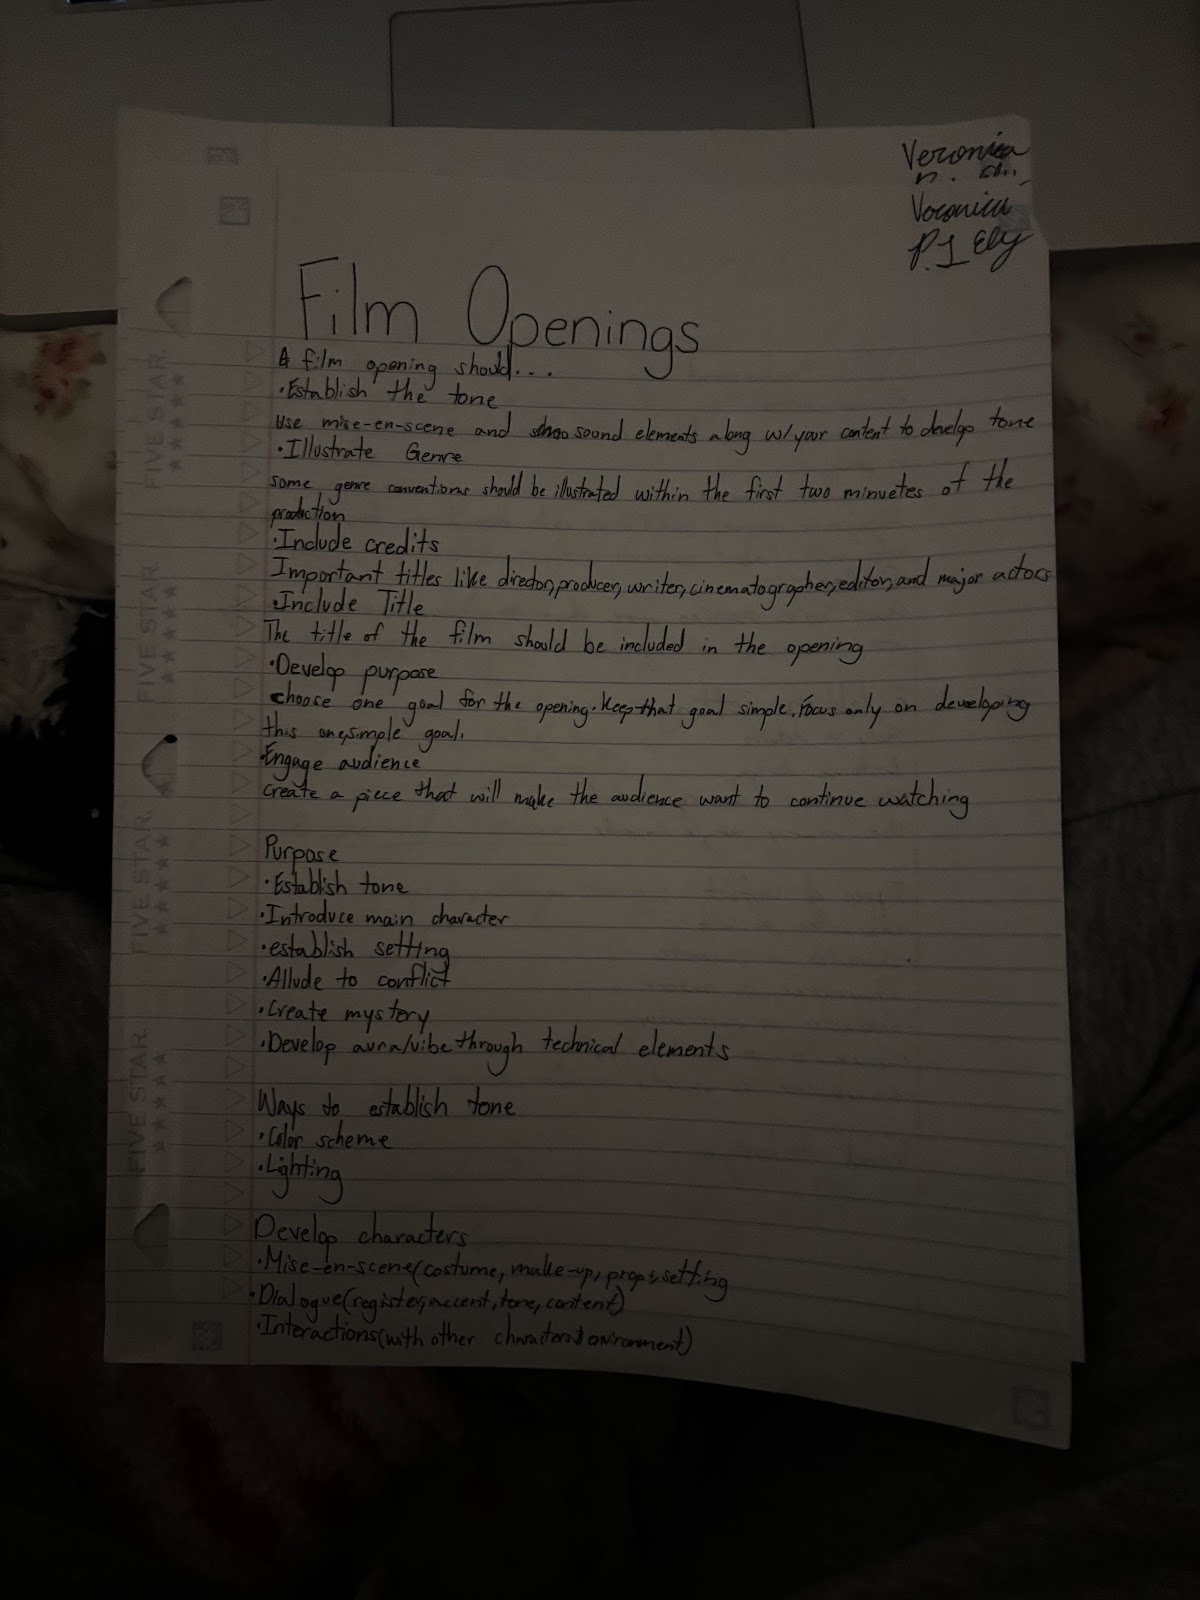 Veronica
Veronica
P.1 Ely
Film Openings
A film opening should...
•Establish the tone
Use mise-en-scene and sound elements along w/your content to develop tone
•Illustrate Genre
some genre conventions should be illustrated within the first two minuetes of the
production
•Include credits
Important titles like director, producer, writer, cinematographer, editor, and major actors
•Include Title
The title of the film should be included in the opening
•Develop purpose
choose one goal for the opening. Keep that goal simple. Focus only on developing
this one, simple goal.
•Engage audience
create a piece that will make the audience want to continue watching
Purpose
•Establish tone
•Introduce main character
•establish setting
•Allude to conflict
•Create mystery
•Develop aura/vibe through technical elements
Ways to establish tone
•Color scheme
•Lighting
Develop characters
•Mise-en-scene(costume, make-up, props, setting
•Dialogue(register, accent, tone, content)
•Interactions(with other characters & environment)
FIVE STAR.
FIVE STAR.
FIVE STAR.
FIVE STAR.